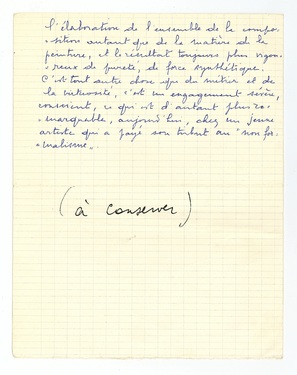 l'élaboration de l'ensemble de la compo-
sition autant que de la matière de la
peinture, et le résultat toujours plus vigou-
reux de pureté, de force synthétique.
C'est tout autre chose que du métier et de
la virtuosité, c'est un engagement sévère,
conscient, ce qui est d'autant plus re-
marquable, aujourd'hui, chez un jeune
artiste qui a payé son tribut au "non for-
malisme".
(à conserver)